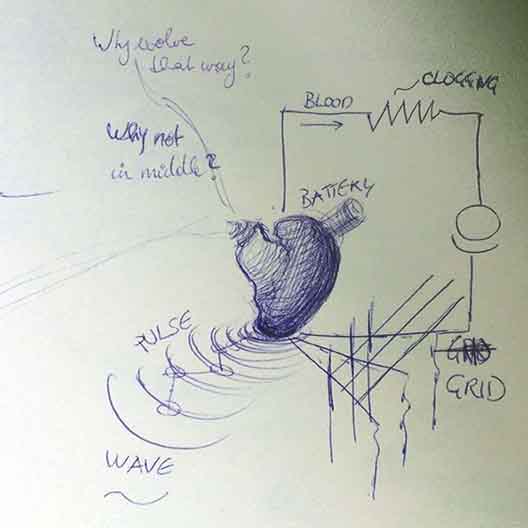 Why evolve
that way?
Why not
in middle?
BLOOD
CLOGGING
BATTERY
PULSE
WAVE
GRID
GRID